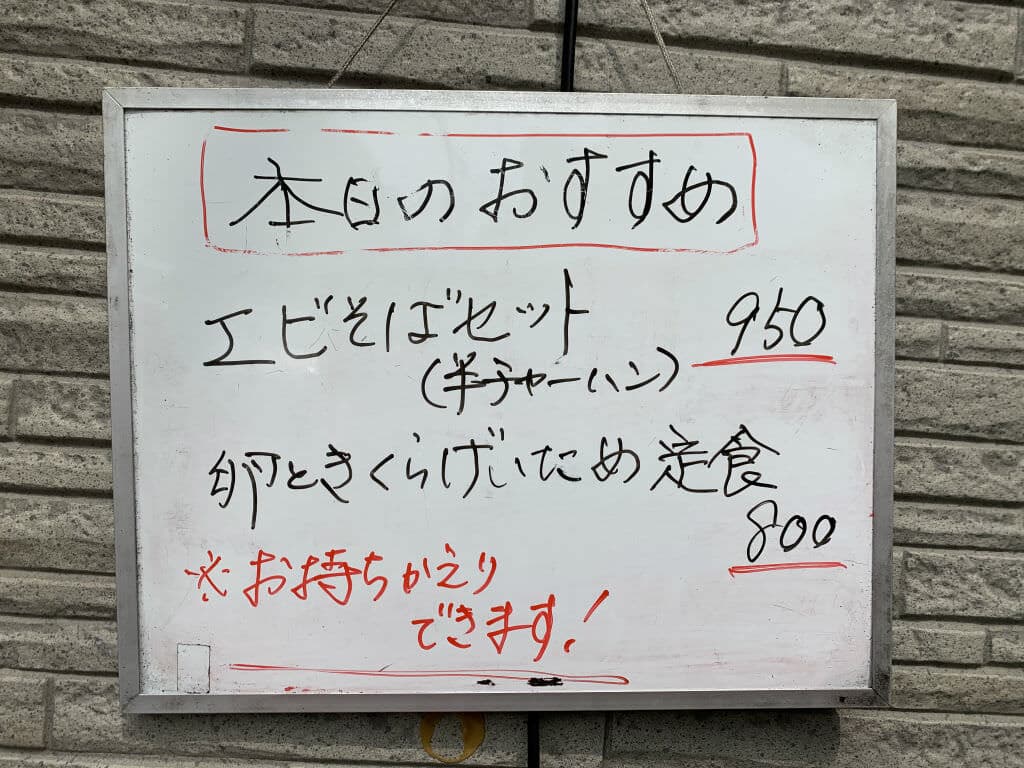 本日のおすすめ
エビそばセット 950
(半チャーハン)
卵ときくらげいため定食
800
※お持ちかえり
できます!